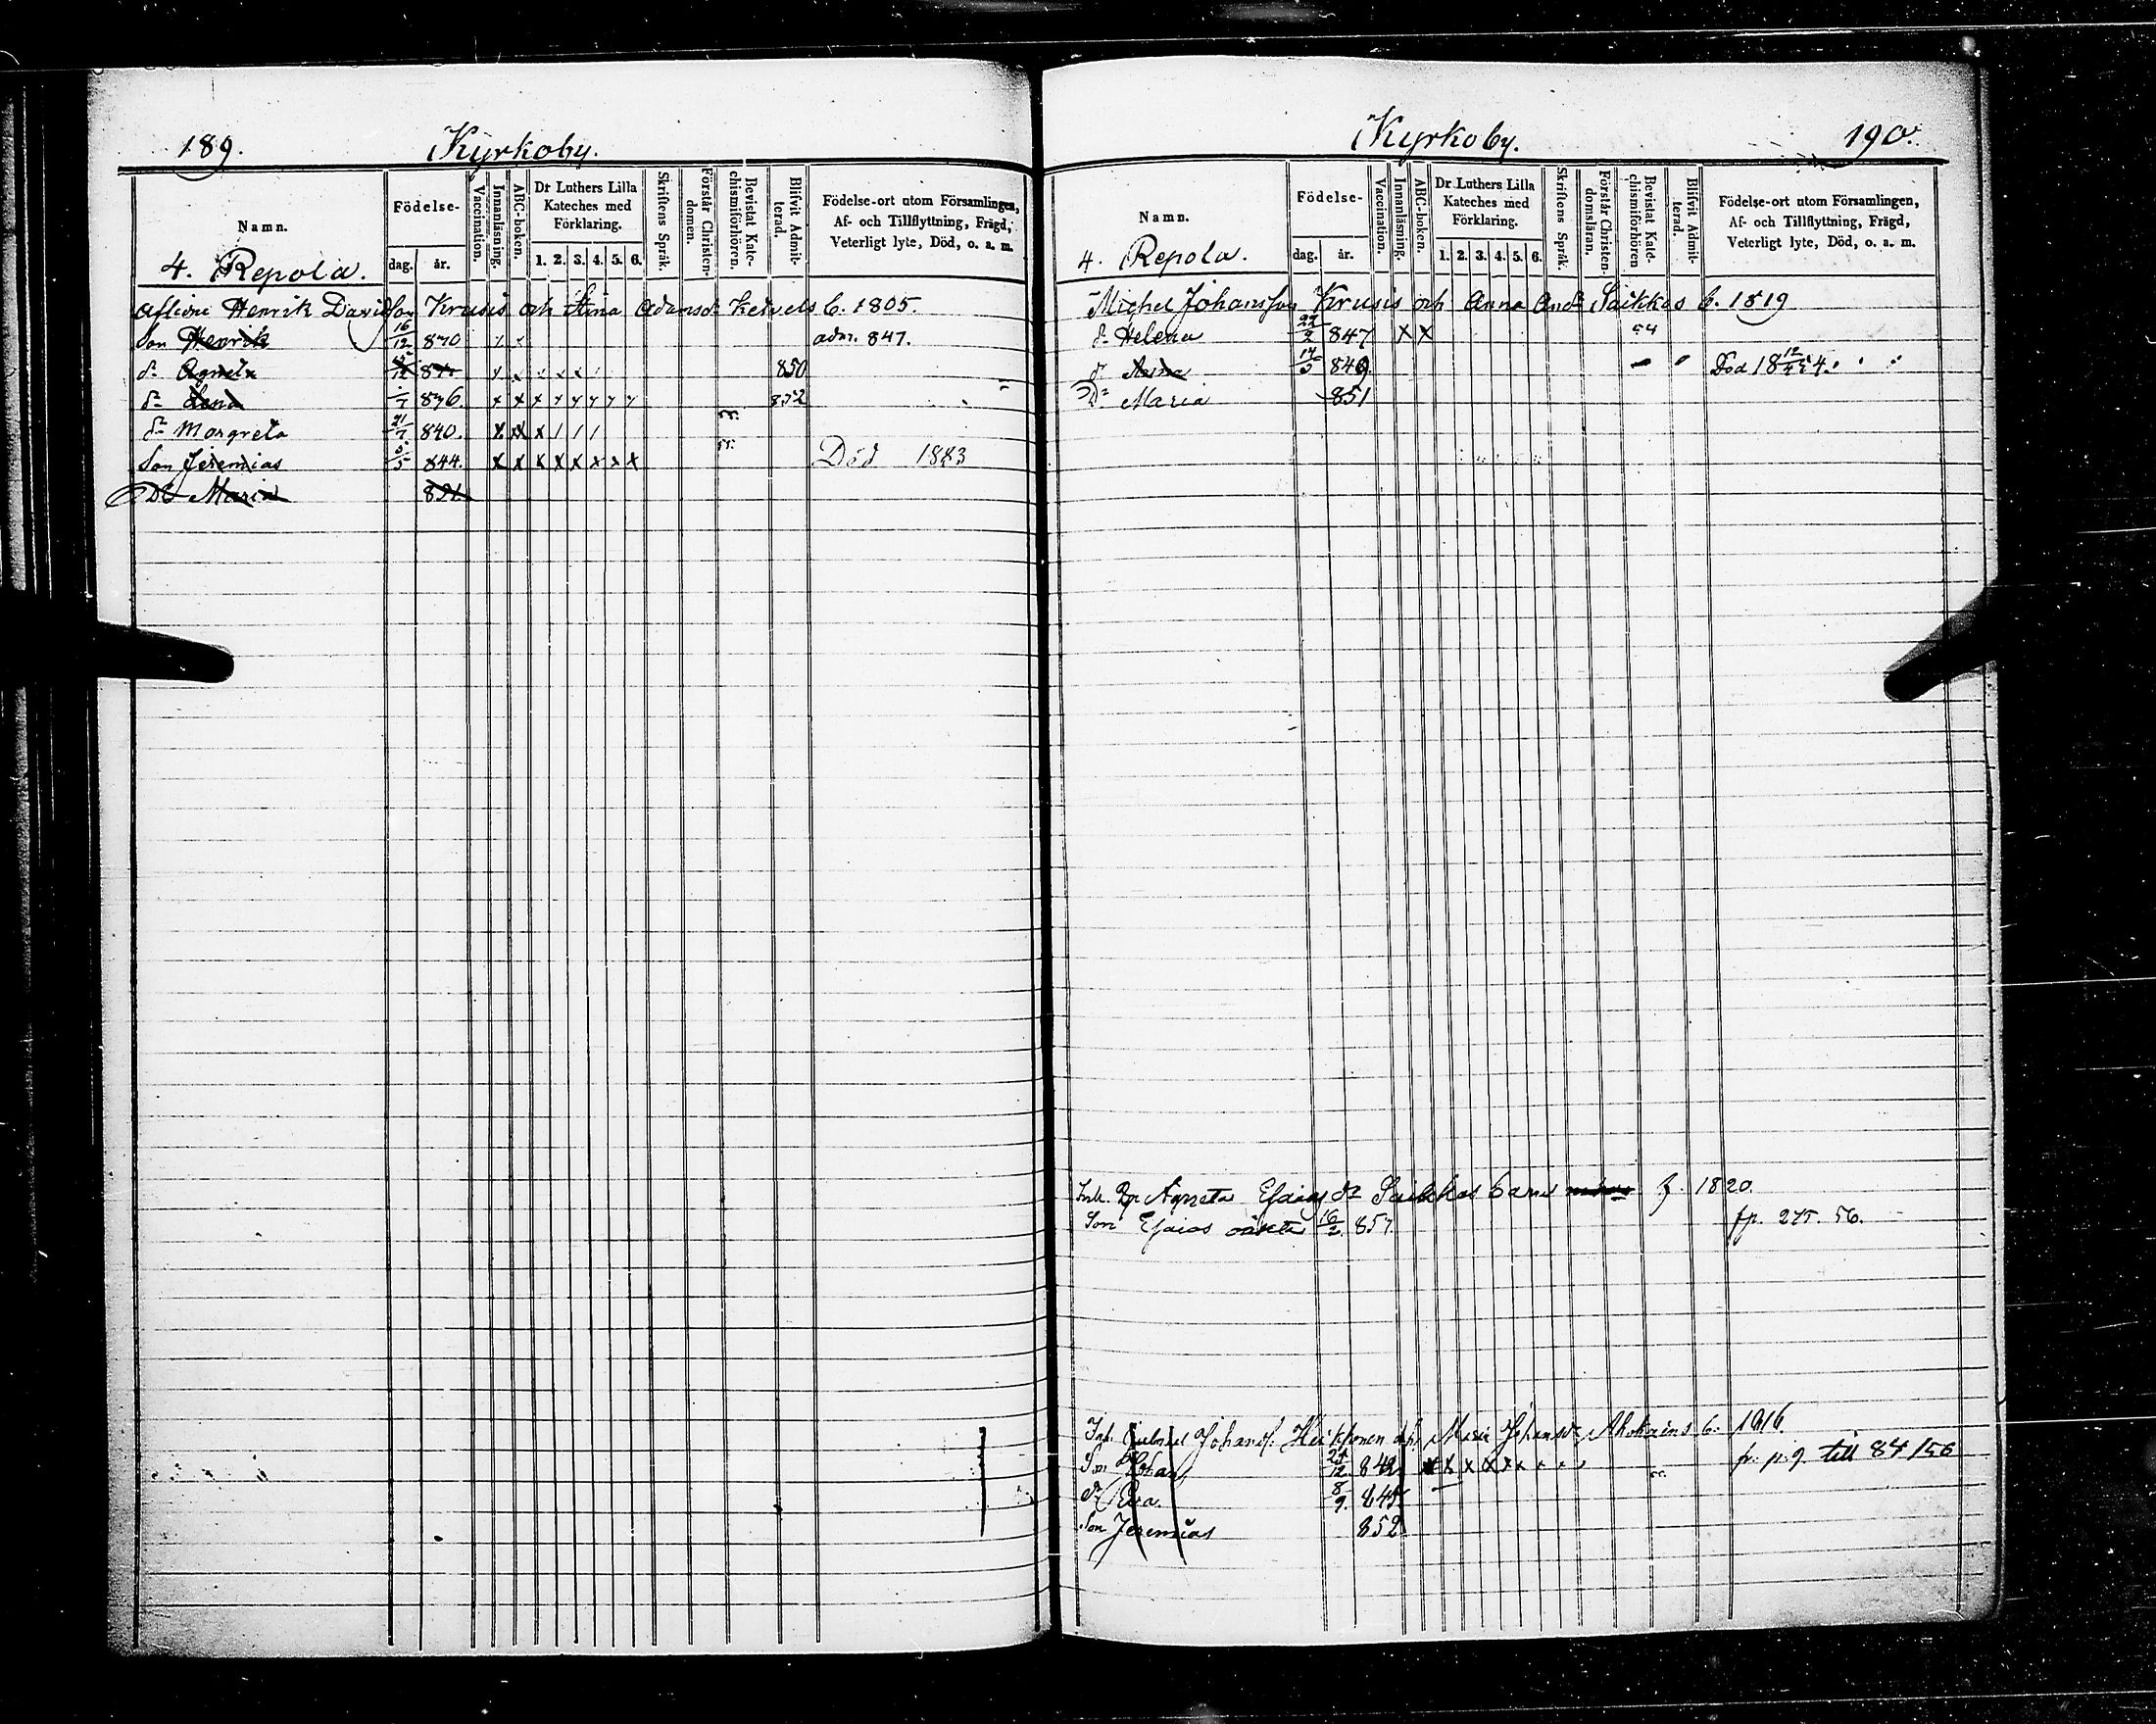 189.
Kyrkoby.
Namn.
Födelse-
dag.
år.
Vaccination.
Innanläsning.
ABC-boken.
Dr Luthers Lilla
Kateches med
Förklaring.
1. 2. 3. 4. 5. 6.
Skriftens Språk.
Förstår Christen-
domen.
Bevistat Kate-
chismiförhören.
Blifvit Admit-
terad.
Födelse-ort utom Församlingen,
Af- och Tillflyttning, Frägd,
Veterligt lyte, Död, o. a. m.
4. Repola.
Aflidne Henrik Davidson Krusis och Stina Adamsdr b. 1805.
Son Henrik 16/12 830 adm. 847.
dr Agneta 850
dr Lena 836. 852
dr Margreta 21/7 840.
Son Jeremias 844. Död 1883
Dr Maria 851
Kyrkoby.
190.
Namn.
Födelse-
dag.
år.
Vaccination.
Innanläsning.
ABC-boken.
Dr Luthers Lilla
Kateches med
Förklaring.
1. 2. 3. 4. 5. 6.
Skriftens Språk.
Förstår Christen-
domsläran.
Bevistat Kate-
chismiförhören
Blifvit Admit-
terad.
Födelse-ort utom Församlingen,
Af- och Tillflyttning, Frägd,
Veterligt lyte, Död, o. a. m.
4. Repola.
Michel Johansson Krusis och Anna Andr Saikkos b. 1819
dr Helena 847 X X 54
dr Anna 14/5 849 Död
Dr Maria 851
Agneta Esaias dr Saikkos barn 1820.
Son Esaias oäkta 16/2 857. fp. 275. 56.
Johans. Heikkonen Maria Johansdr b. 1816.
Son Johan 842 fr. p. 9 till 84/56
dr Eva 8/9. 845
Son Jeremias 852